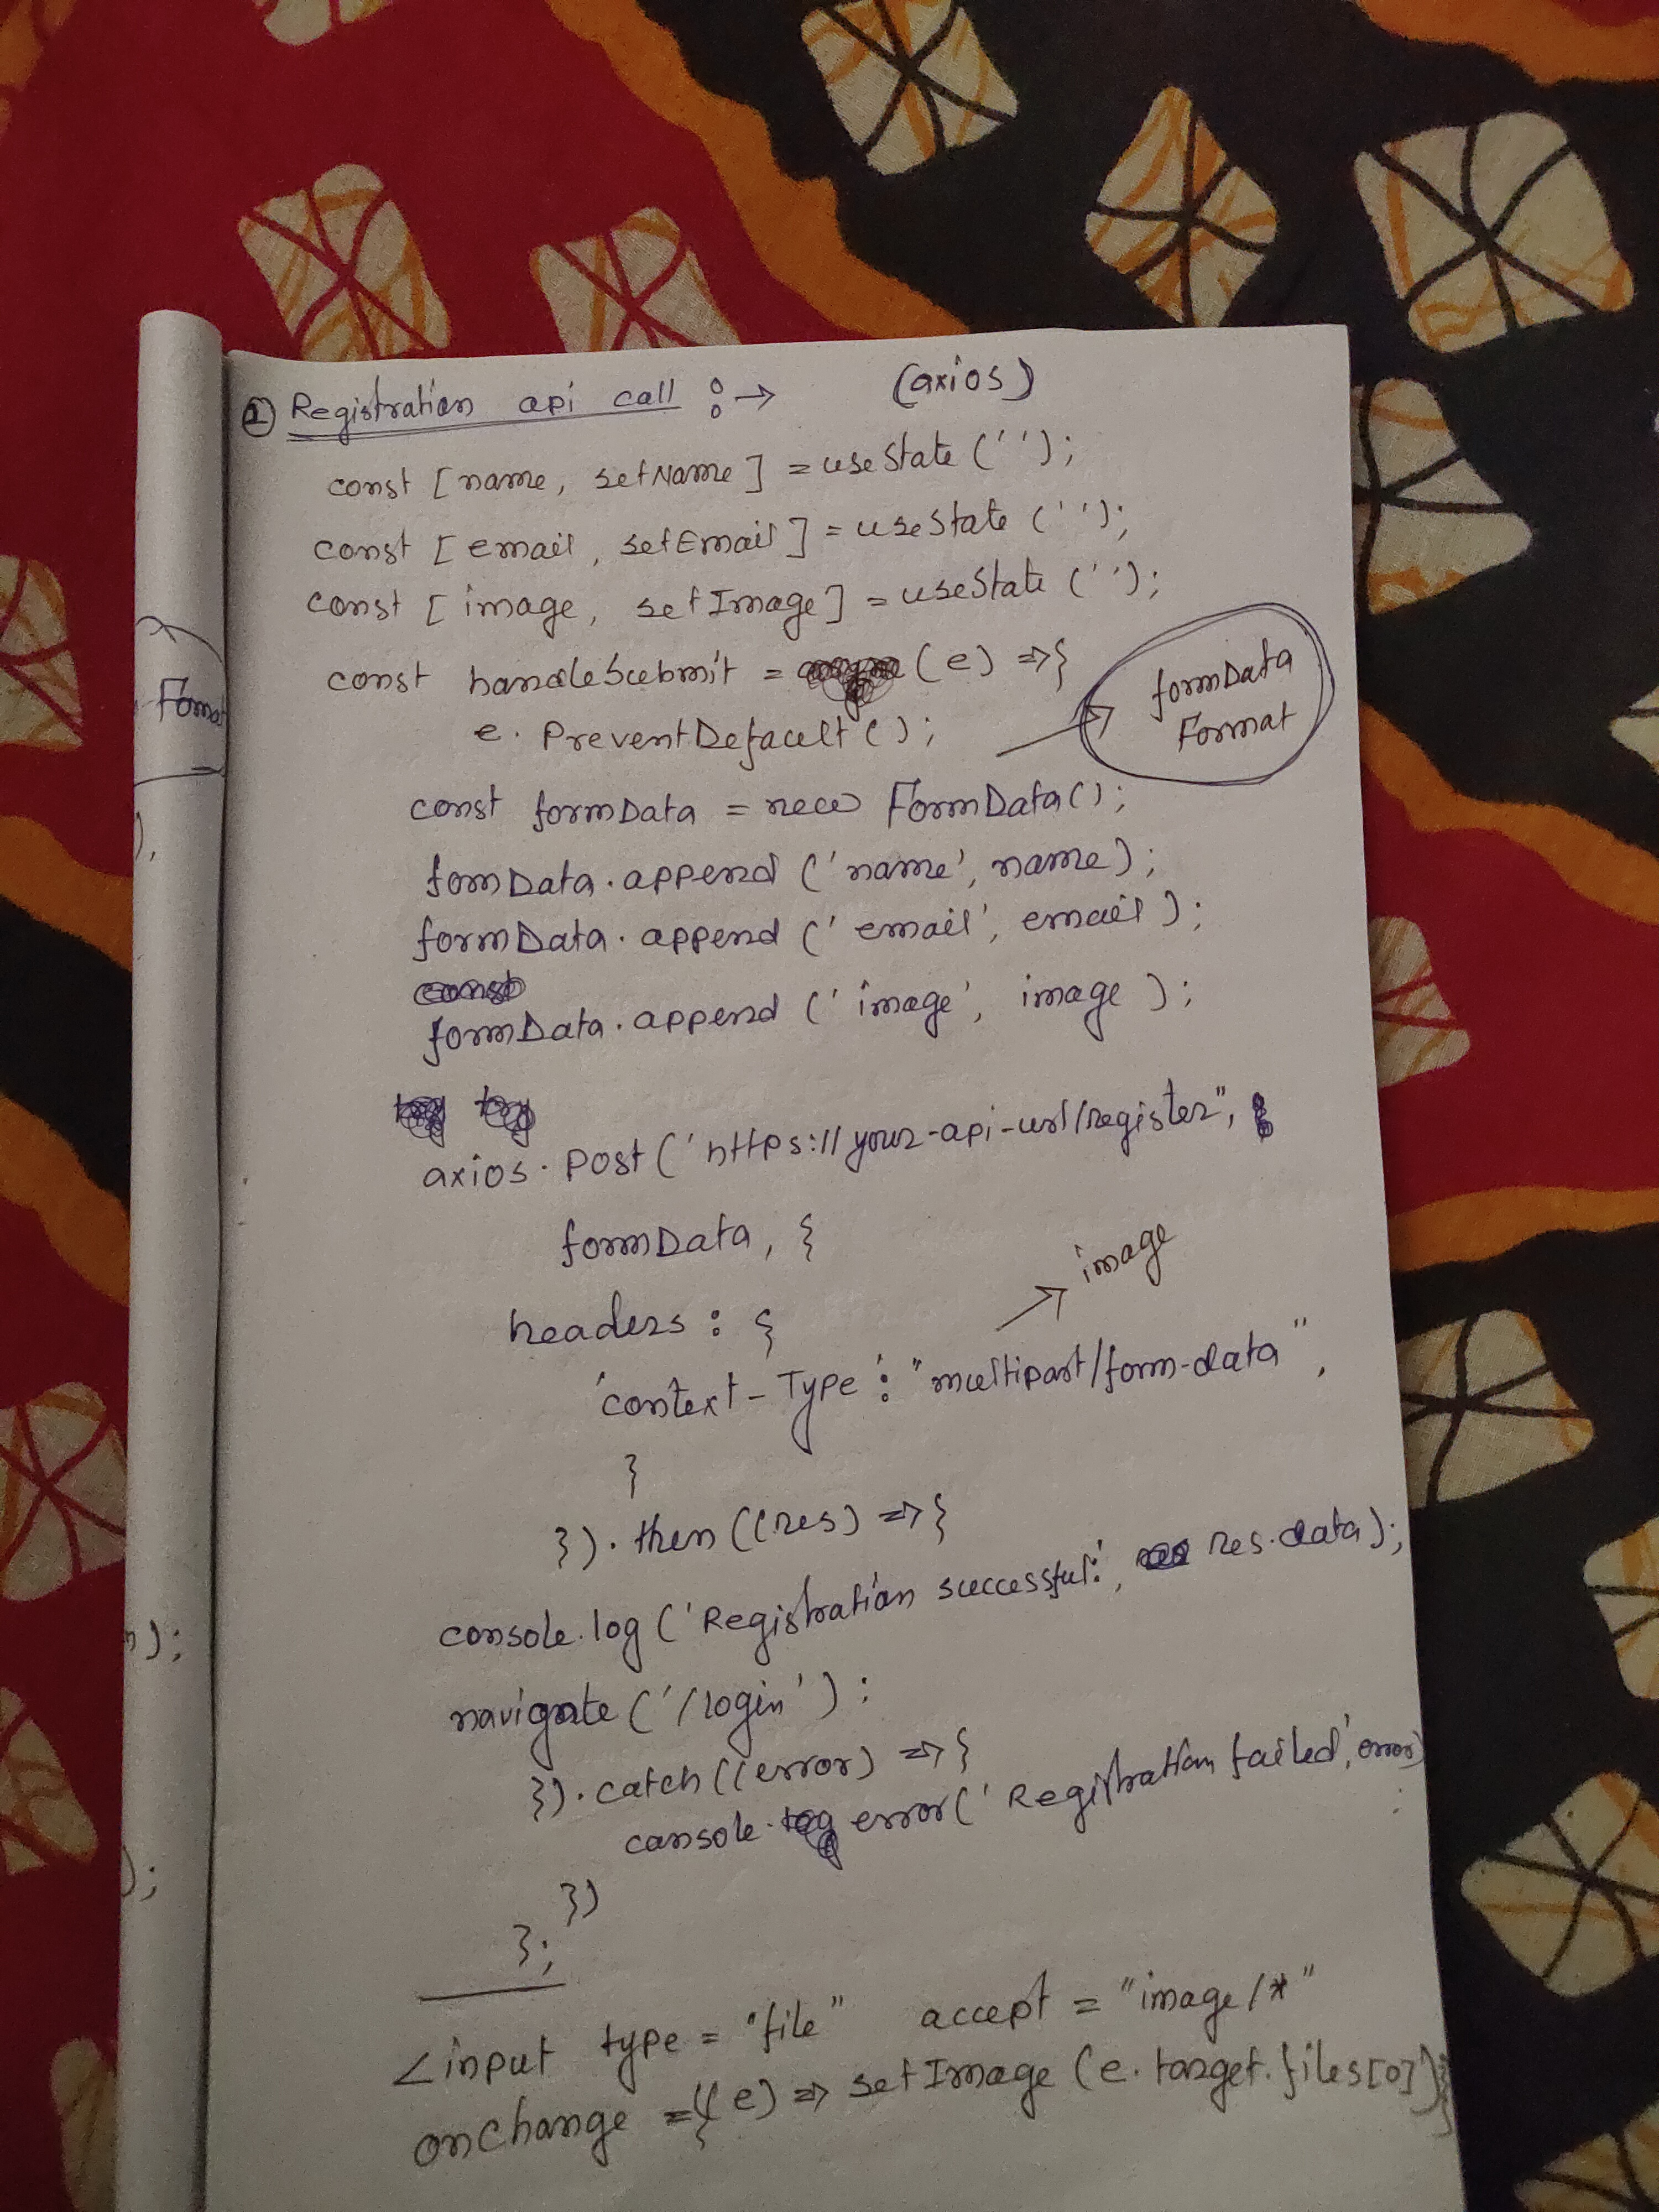 ① Registration api call :→ (axios)
const [name, setName] = useState ('');
const [email, setEmail] = useState ('');
const [image, setImage] = useState ('');
const handleSubmit = (e) => {
e. PreventDefault();
formData
Format
const formData = new FormData();
formData.append ('name', name);
formData.append ('email', email);
formData.append ('image', image);
axios.post ('https://your-api-url/register",
formData, {
image
headers : {
'context-Type' : "multipart/form-data",
}
}).then ((res) => {
console.log ('Registration successful:', res.data);
navigate ('/login') ;
}).catch ((error) => {
console.error ('Registration failed', error)
;
})
};
<input type = "file" accept = "image/*"
onChange ={(e) => setImage (e.target.files[0])}
Format
),
);
);